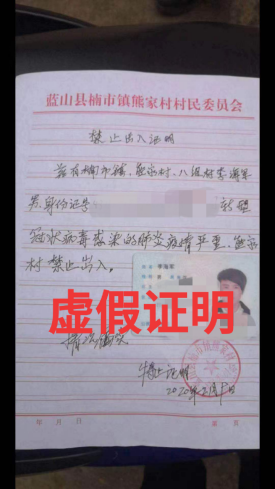 蓝山县楠市镇熊家村村民委员会
禁止出入证明
兹有楠市镇,熊家村,八组村李
身份证号 新型
冠状病毒感染的肺炎疫情严重,熊家
村禁止出入。
虚假证明
情况属实
特此证明
2020年2月1日
年 月 日
第 页